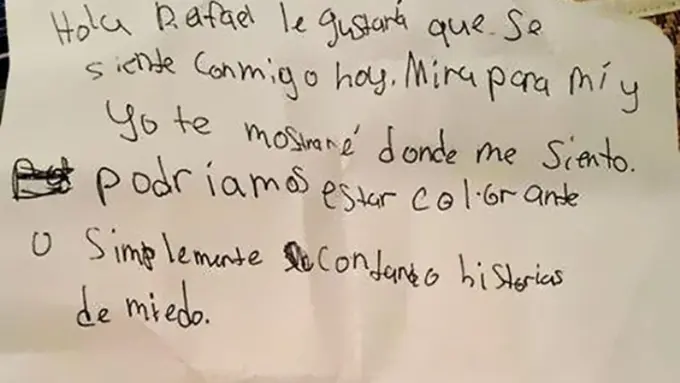 Hola Rafael le gustará que se
siente conmigo hoy. Mira para mí y
Yo te mostraré donde me siento.
podríamos estar colorante
o simplemente contando historias
de miedo.